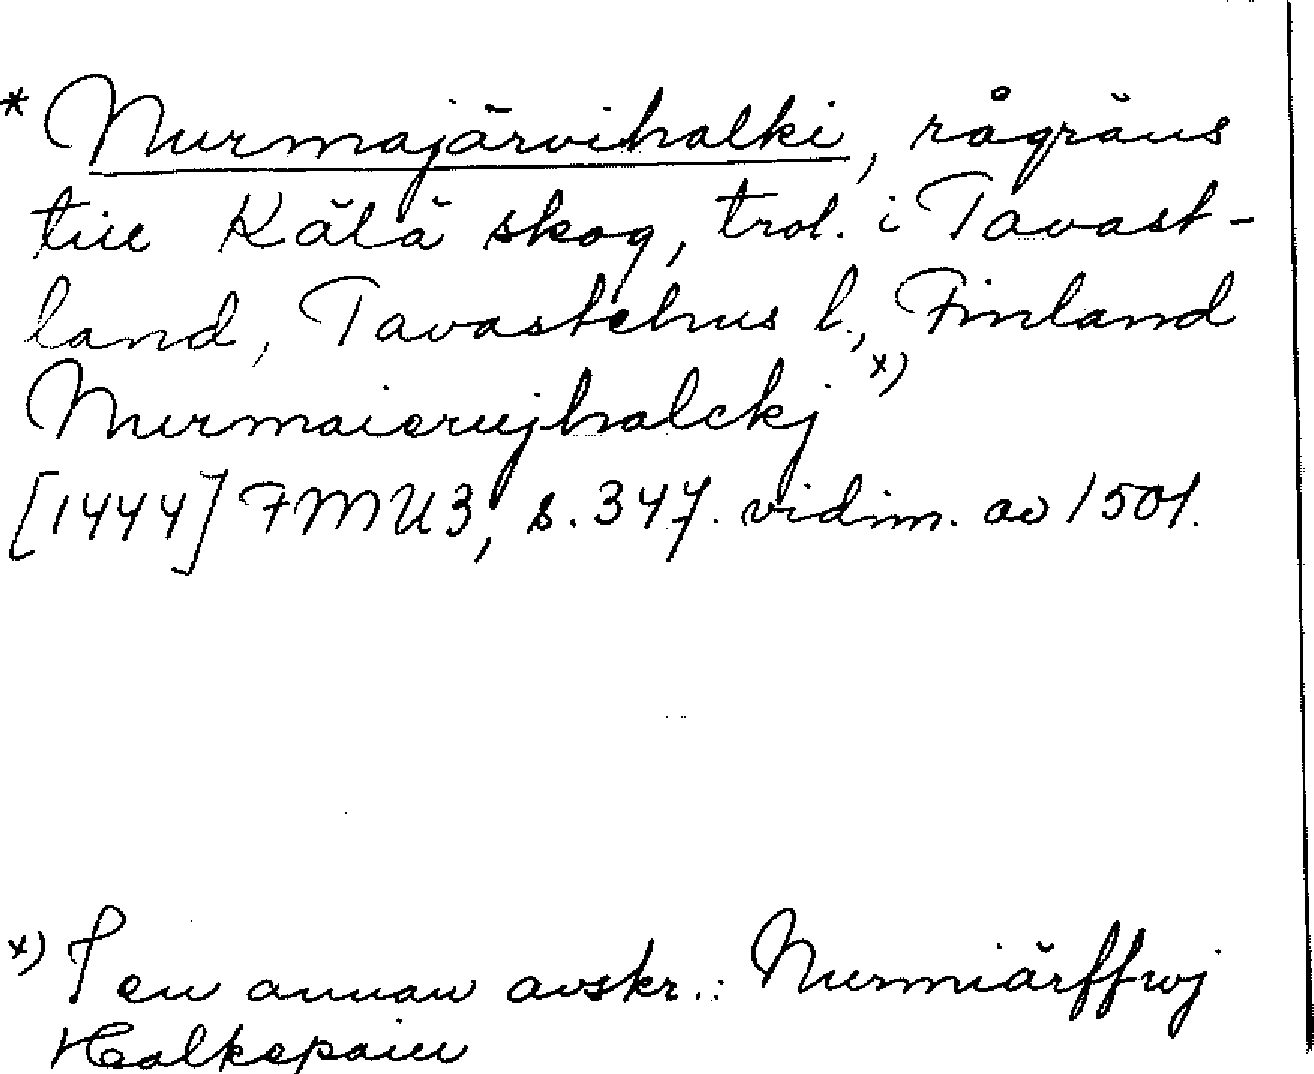 * Nurmajärvihalki, rågräns
till Kälä skog, trol. i Tavast-
land, Tavastehus l., Finland
Nurmaierujhalckj x)
[1444] FMU3, s. 347. vidim. av 1501.
x) I en annan avskr.: Nurmiärffwj
Halkepain